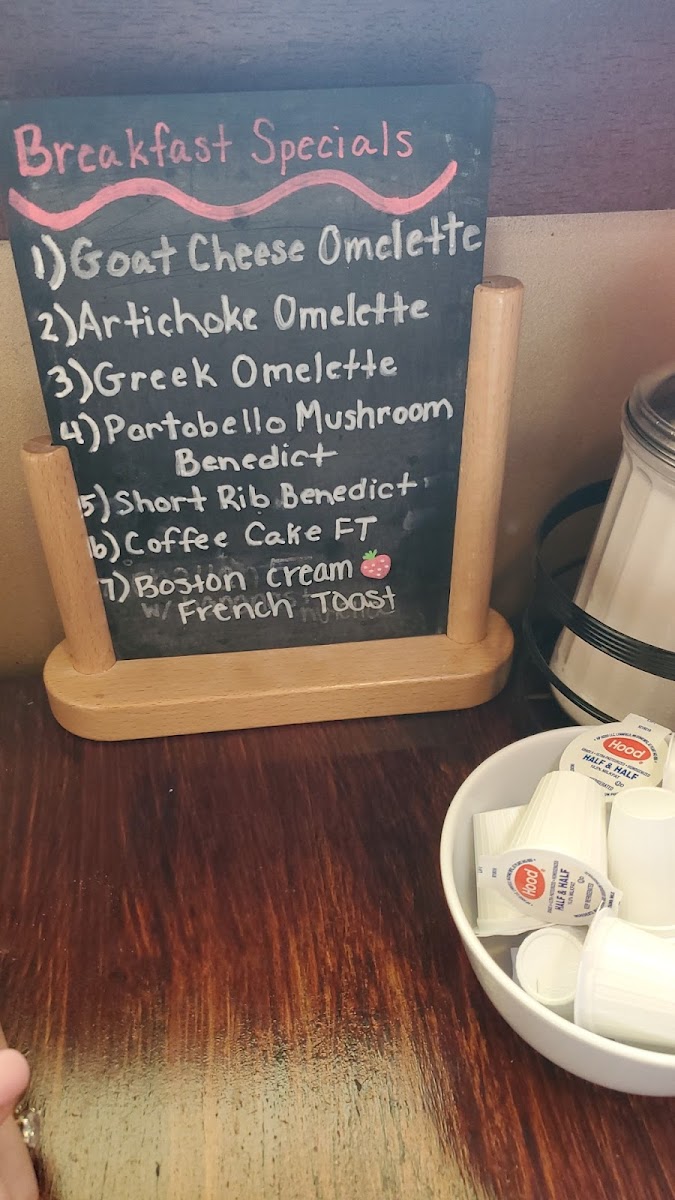 Breakfast Specials
1) Goat Cheese Omelette
2) Artichoke Omelette
3) Greek Omelette
4) Portobello Mushroom
Benedict
5) Short Rib Benedict
6) Coffee Cake FT
7) Boston Cream
French Toast
Hood
HALF & HALF
Hood
HALF & HALF